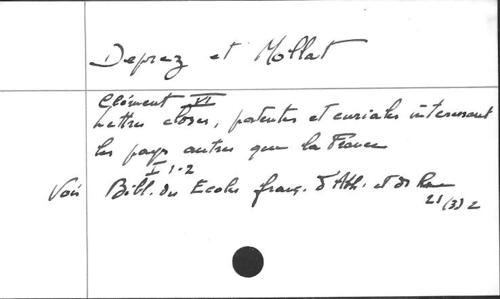 Deprez et Mollat
Clément VI
Lettres closes, patentes et curiales intéressant
les pays autres que la France
I 1-2
Voir Bibl. des Ecoles franç. d'Ath. et de Rome
21 (3) 2